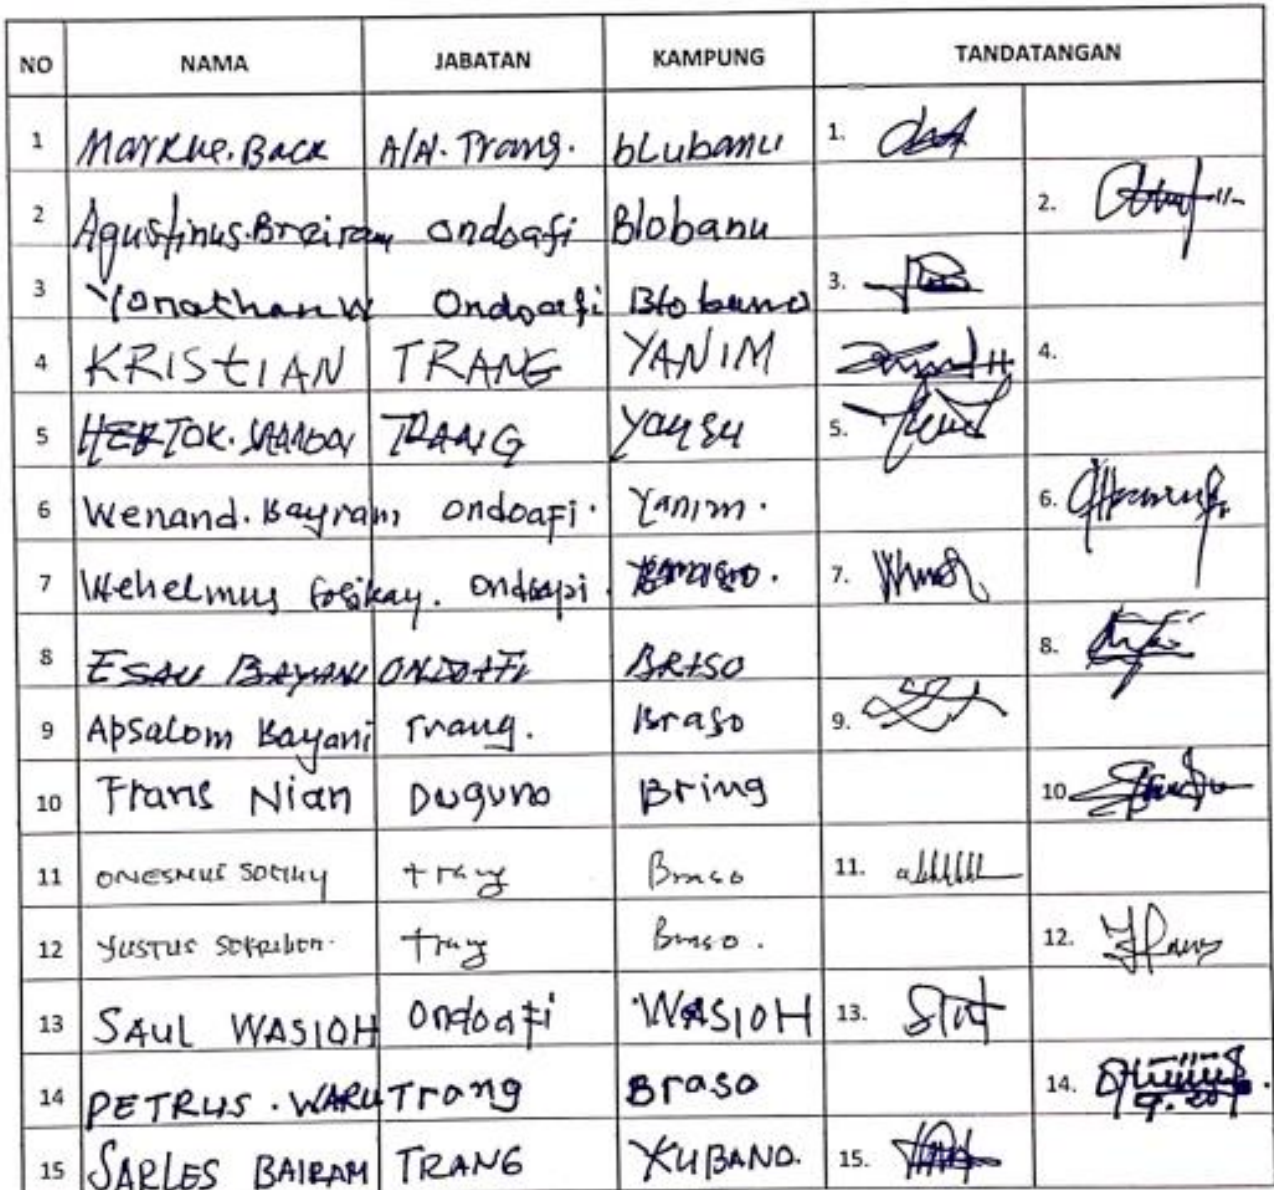 NO NAMA JABATAN KAMPUNG TANDATANGAN
1 Markue. Back A/A. Trang. bLubanu 1.
2 Agustinus. Breiram ondoafi Blobanu 2.
3 Yonathan W Ondoafi Blobano 3.
4 KRIStIAN TRANG YANIM 4.
5 HERTOK. TRANG Yansu 5.
6 Wenand. Bayram ondoafi. Yanim. 6.
7 Wehelmus ondoapi. 7.
8 ESAU BAYANI ONDOAFI BRASO 8.
9 Apsalom Bayani Trang. Braso 9.
10 Frans Nian Duguno Bring 10.
11 trang Braso 11.
12 YUSTUS trang Braso. 12.
13 SAUL WASIOH Ondoafi WASIOH 13.
14 PETRUS. WARU Trang Braso 14.
15 SARLES BAIRAM TRANG KUBANO. 15.